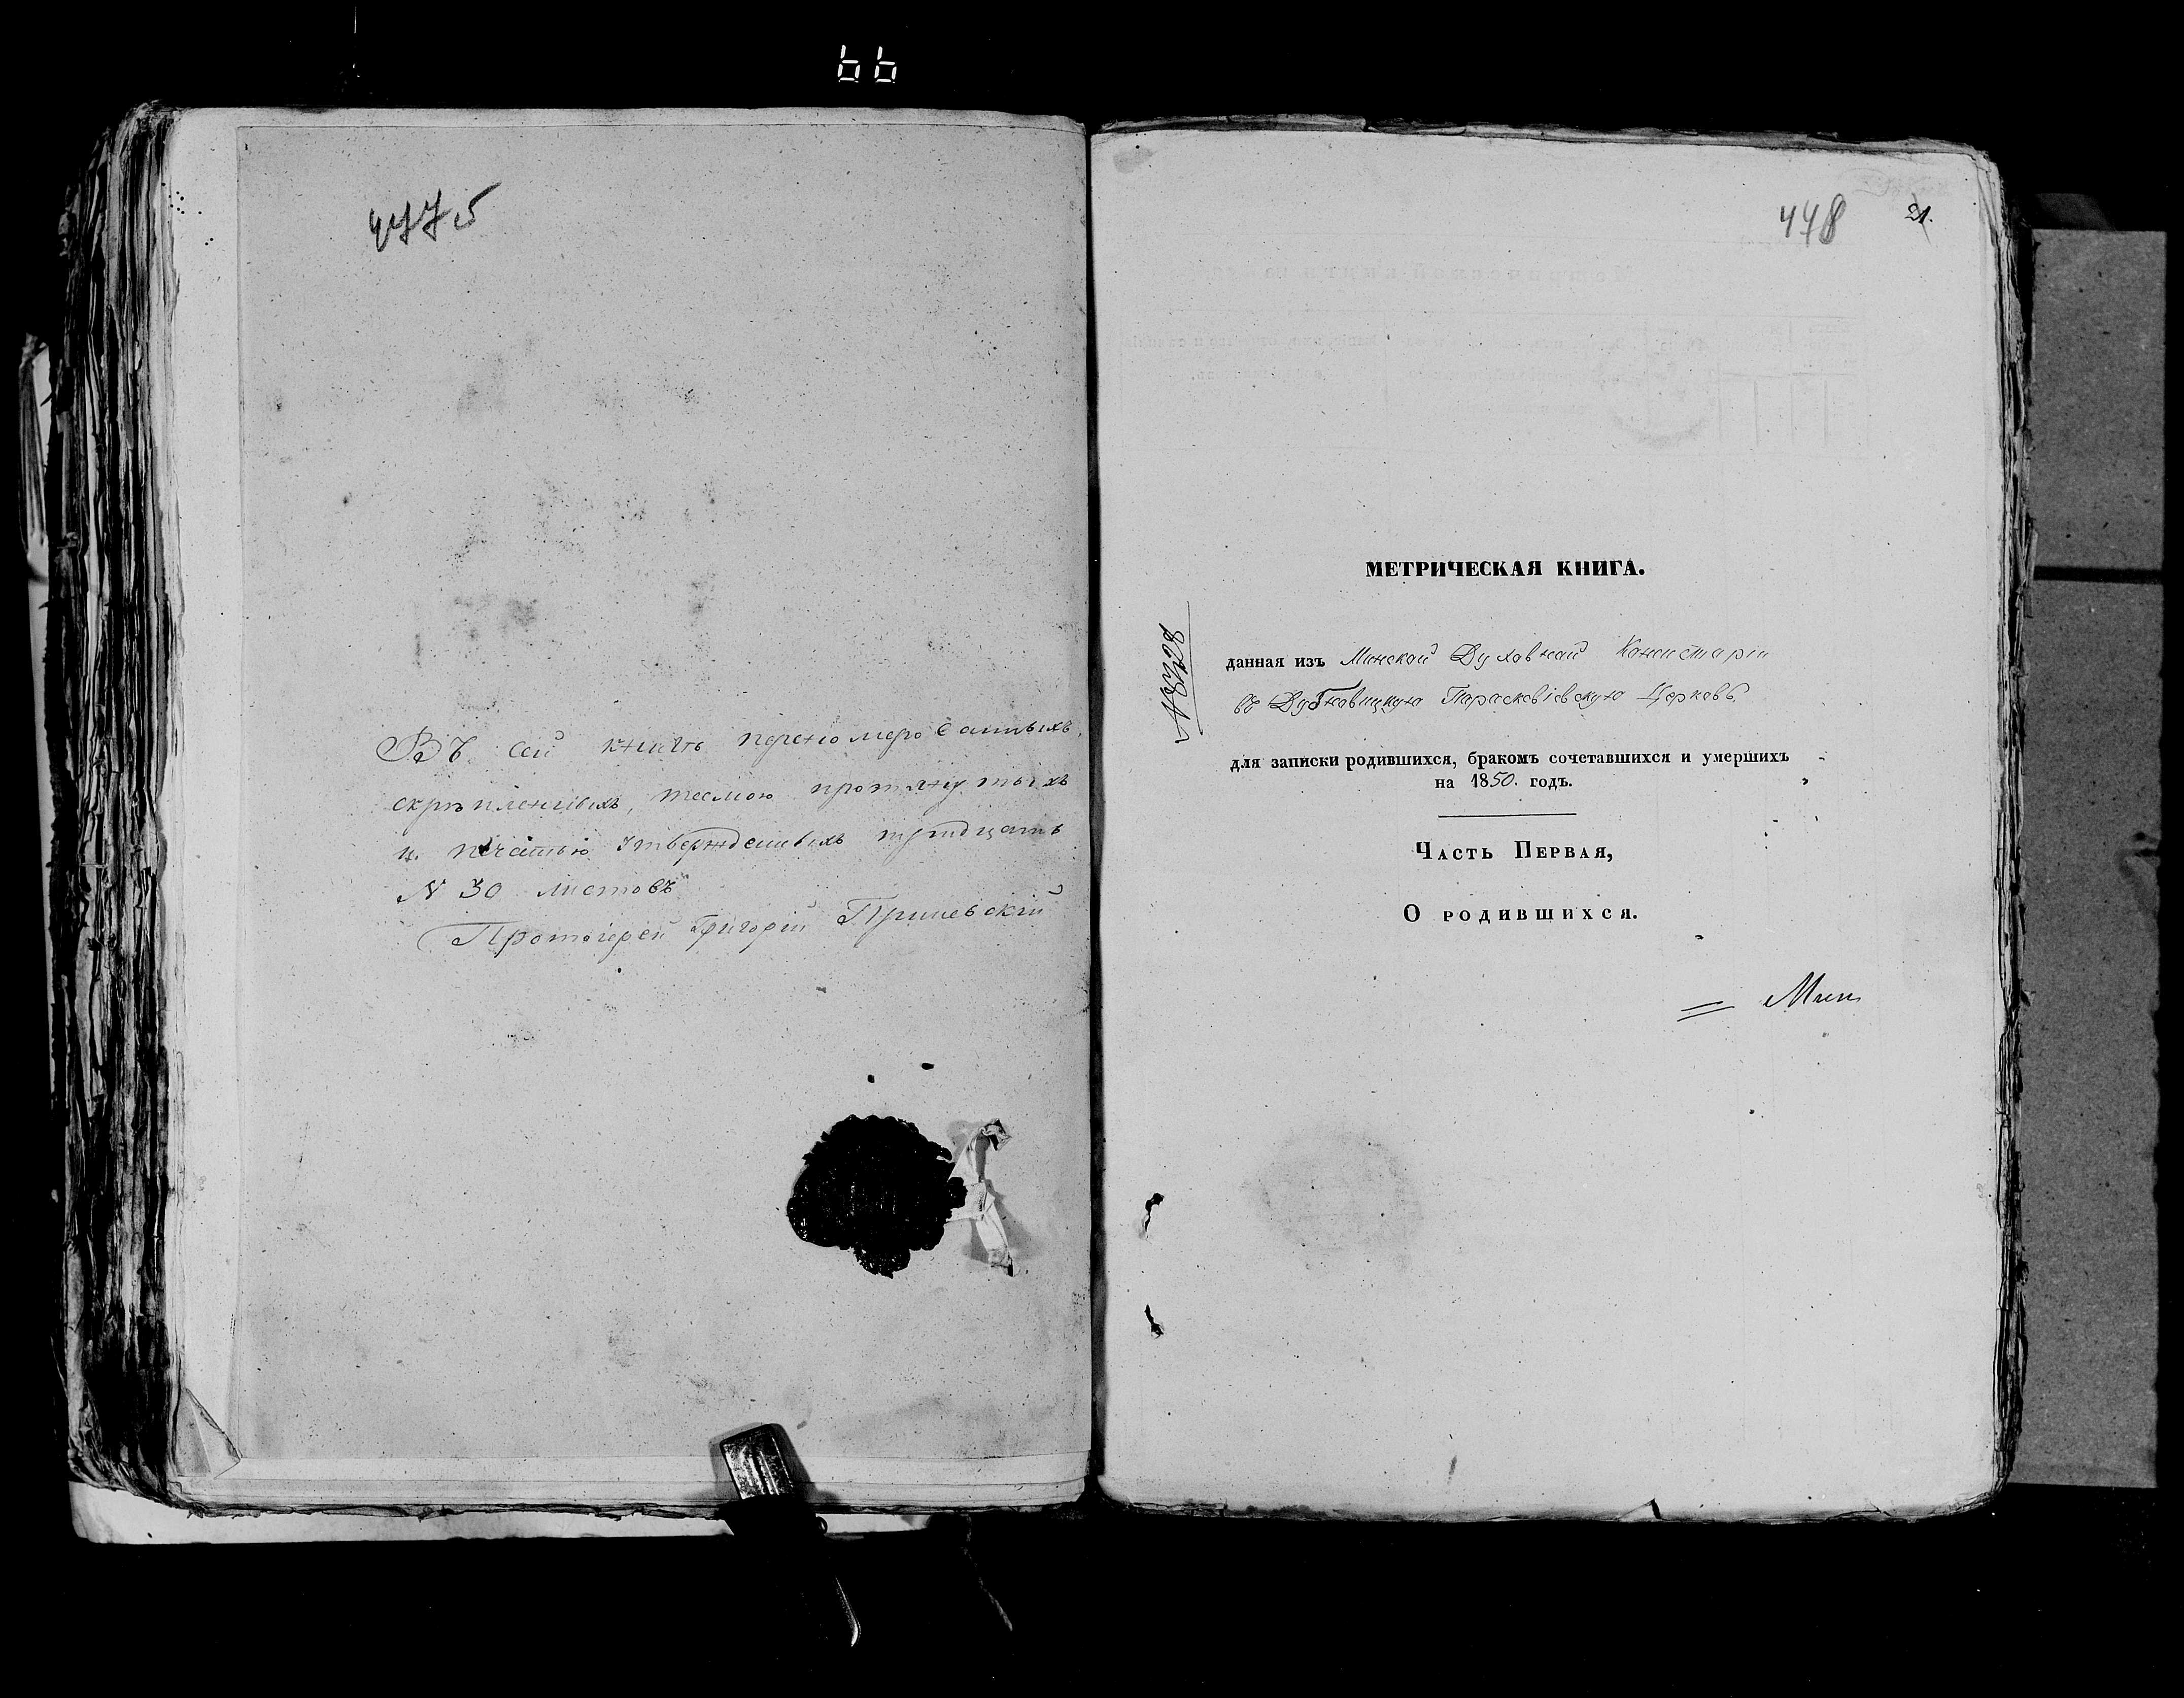 4775
Въ сей книгѣ перенумерованныхъ,
скрѣпленныхъ, тесмою протянутыхъ
и печатью утвержденныхъ тридцать
N 30 листовъ
Протоіерей Григорій
448 21.
МЕТРИЧЕСКАЯ КНИГА.
№ 8328
данная изъ Минской Духовной Консисторіи
въ Дубновицкую Параскевіевскую Церковь
для записки родившихся, бракомъ сочетавшихся и умершихъ
на 1850. годъ.
Часть Первая,
О родившихся.